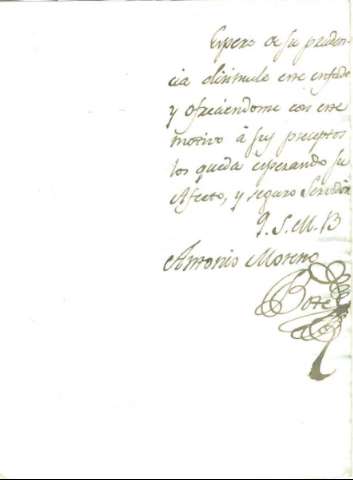 Espero de su pruden-
cia disimule este enfado
y ofreciendome con este
motivo à sus preceptos
los queda esperando su
Afecto, y seguro Servidor
Q. S. M. B
Antonio Moreno